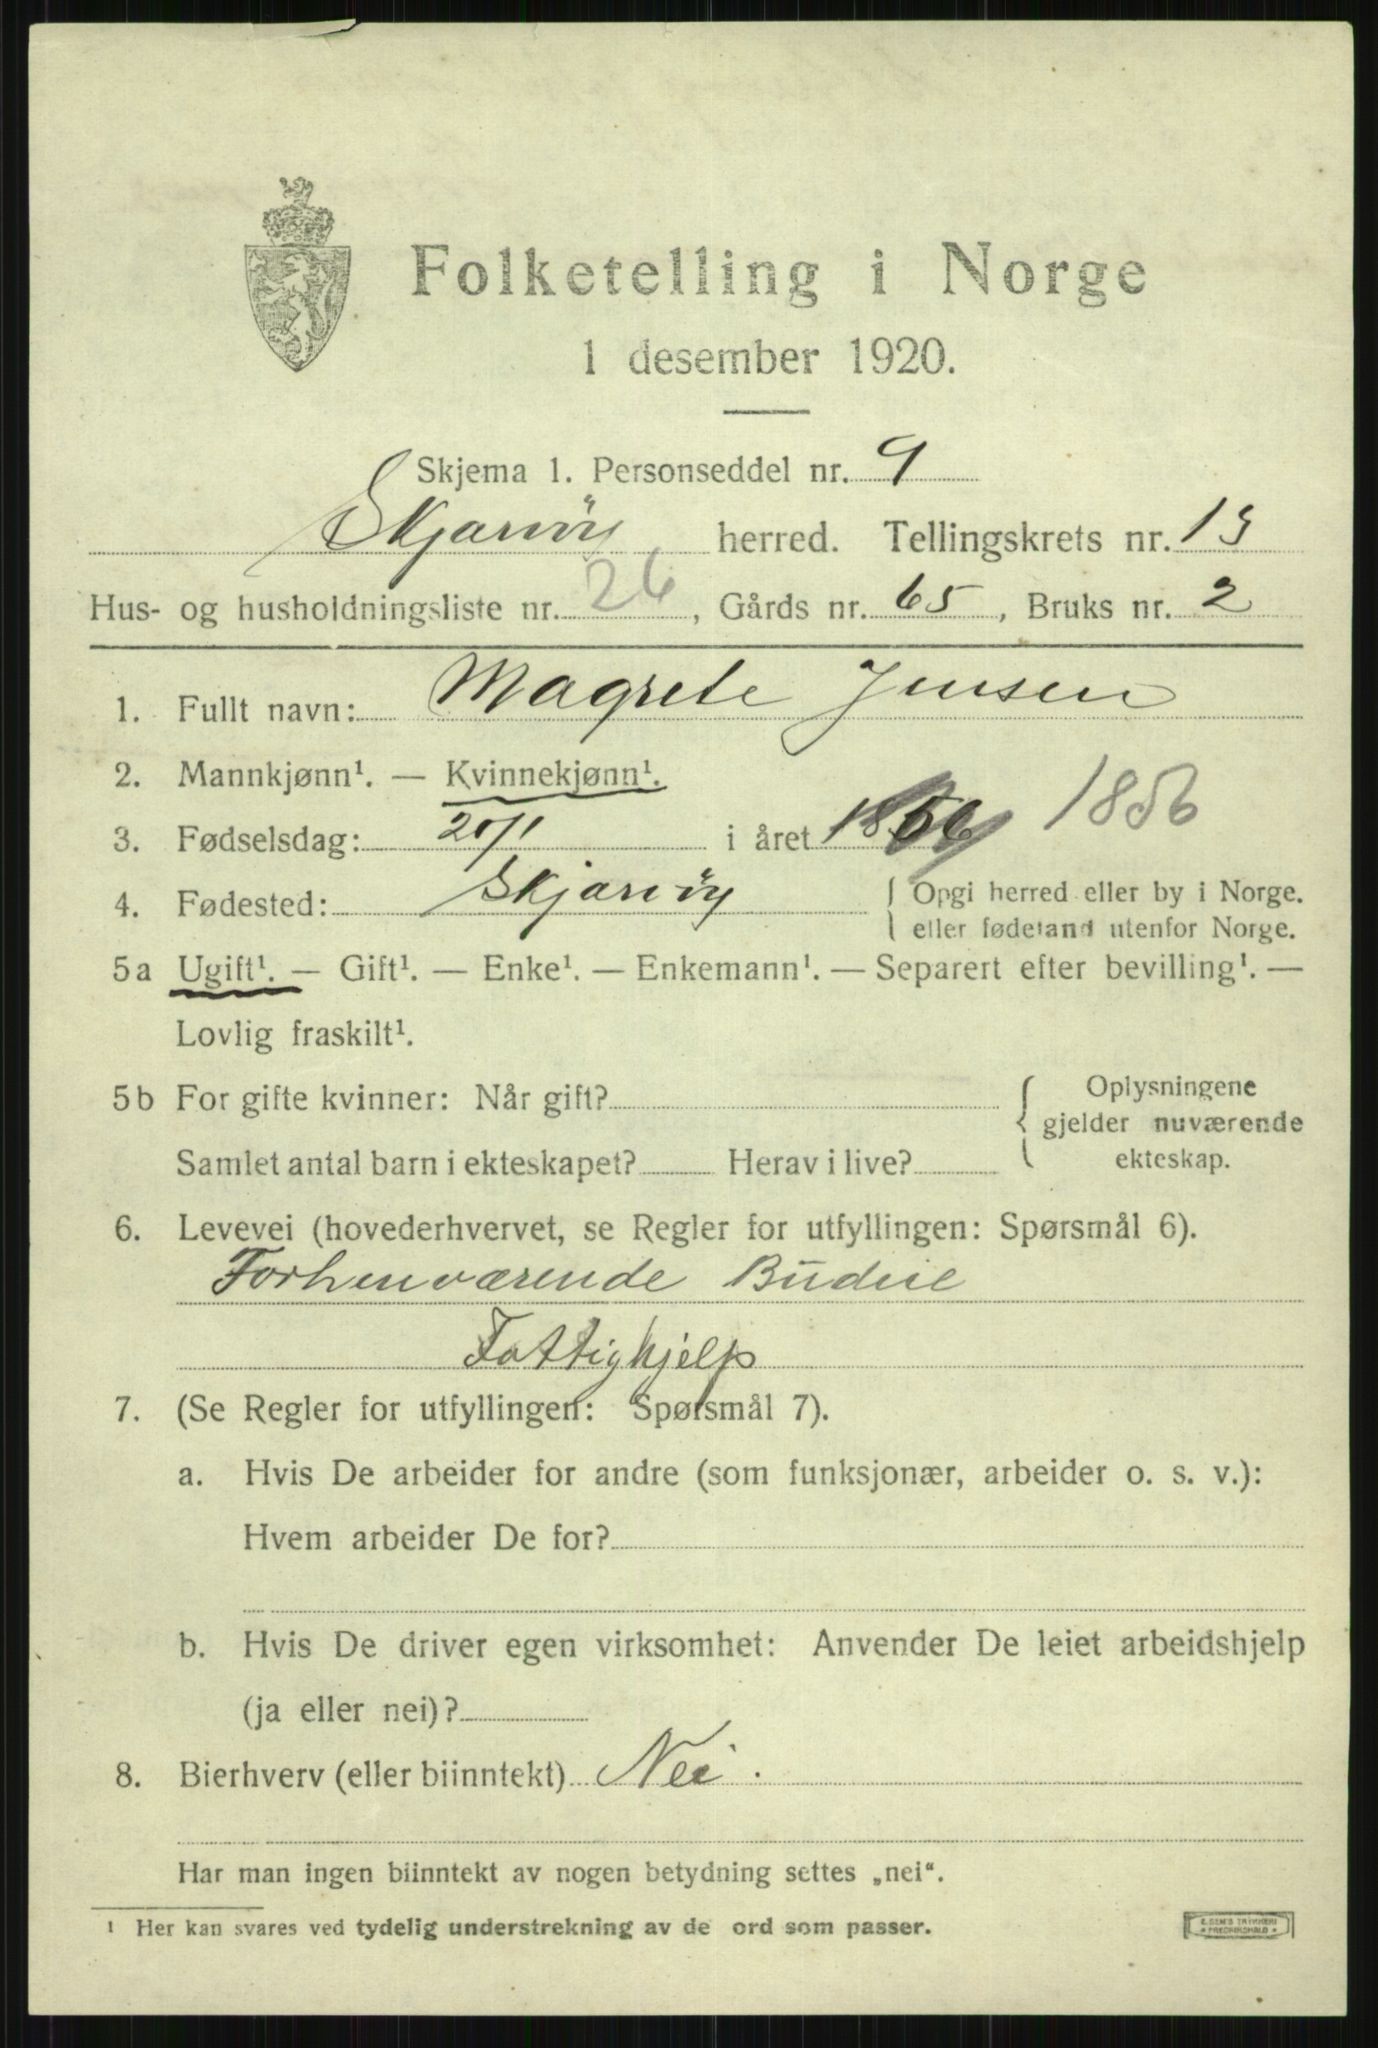 Folketelling i Norge
1 desember 1920.
Skjema 1. Personseddel nr. 9
Skjærvöy herred. Tellingskrets nr. 13
Hus- og husholdningsliste nr. 26, Gårds nr. 65, Bruks nr. 2
1. Fullt navn: Magrete Jensen
2. Mannkjønn¹. — Kvinnekjønn¹.
3. Fødselsdag: 20/1 i året 1856 1856
4. Fødested: Skjærvöy { Opgi herred eller by i Norge.
eller fødeland utenfor Norge.
5a Ugift¹. — Gift¹. — Enke¹. — Enkemann¹. — Separert efter bevilling¹. —
Lovlig fraskilt¹.
5b For gifte kvinner: Når gift? { Oplysningene
gjelder nuværende
Samlet antal barn i ekteskapet? Herav i live? ekteskap.
6. Levevei (hovederhvervet, se Regler for utfyllingen: Spørsmål 6).
Forhenværende Budeie
Fattighjelp
7. (Se Regler for utfyllingen: Spørsmål 7).
a. Hvis De arbeider for andre (som funksjonær, arbeider o. s. v.):
Hvem arbeider De for?
b. Hvis De driver egen virksomhet: Anvender De leiet arbeidshjelp
(ja eller nei)?
8. Bierhverv (eller biinntekt) Nei.
Har man ingen biinntekt av nogen betydning settes „nei“.
¹ Her kan svares ved tydelig understrekning av de ord som passer.
E. SEM'S TRYKKERI
FREDRIKSHALD